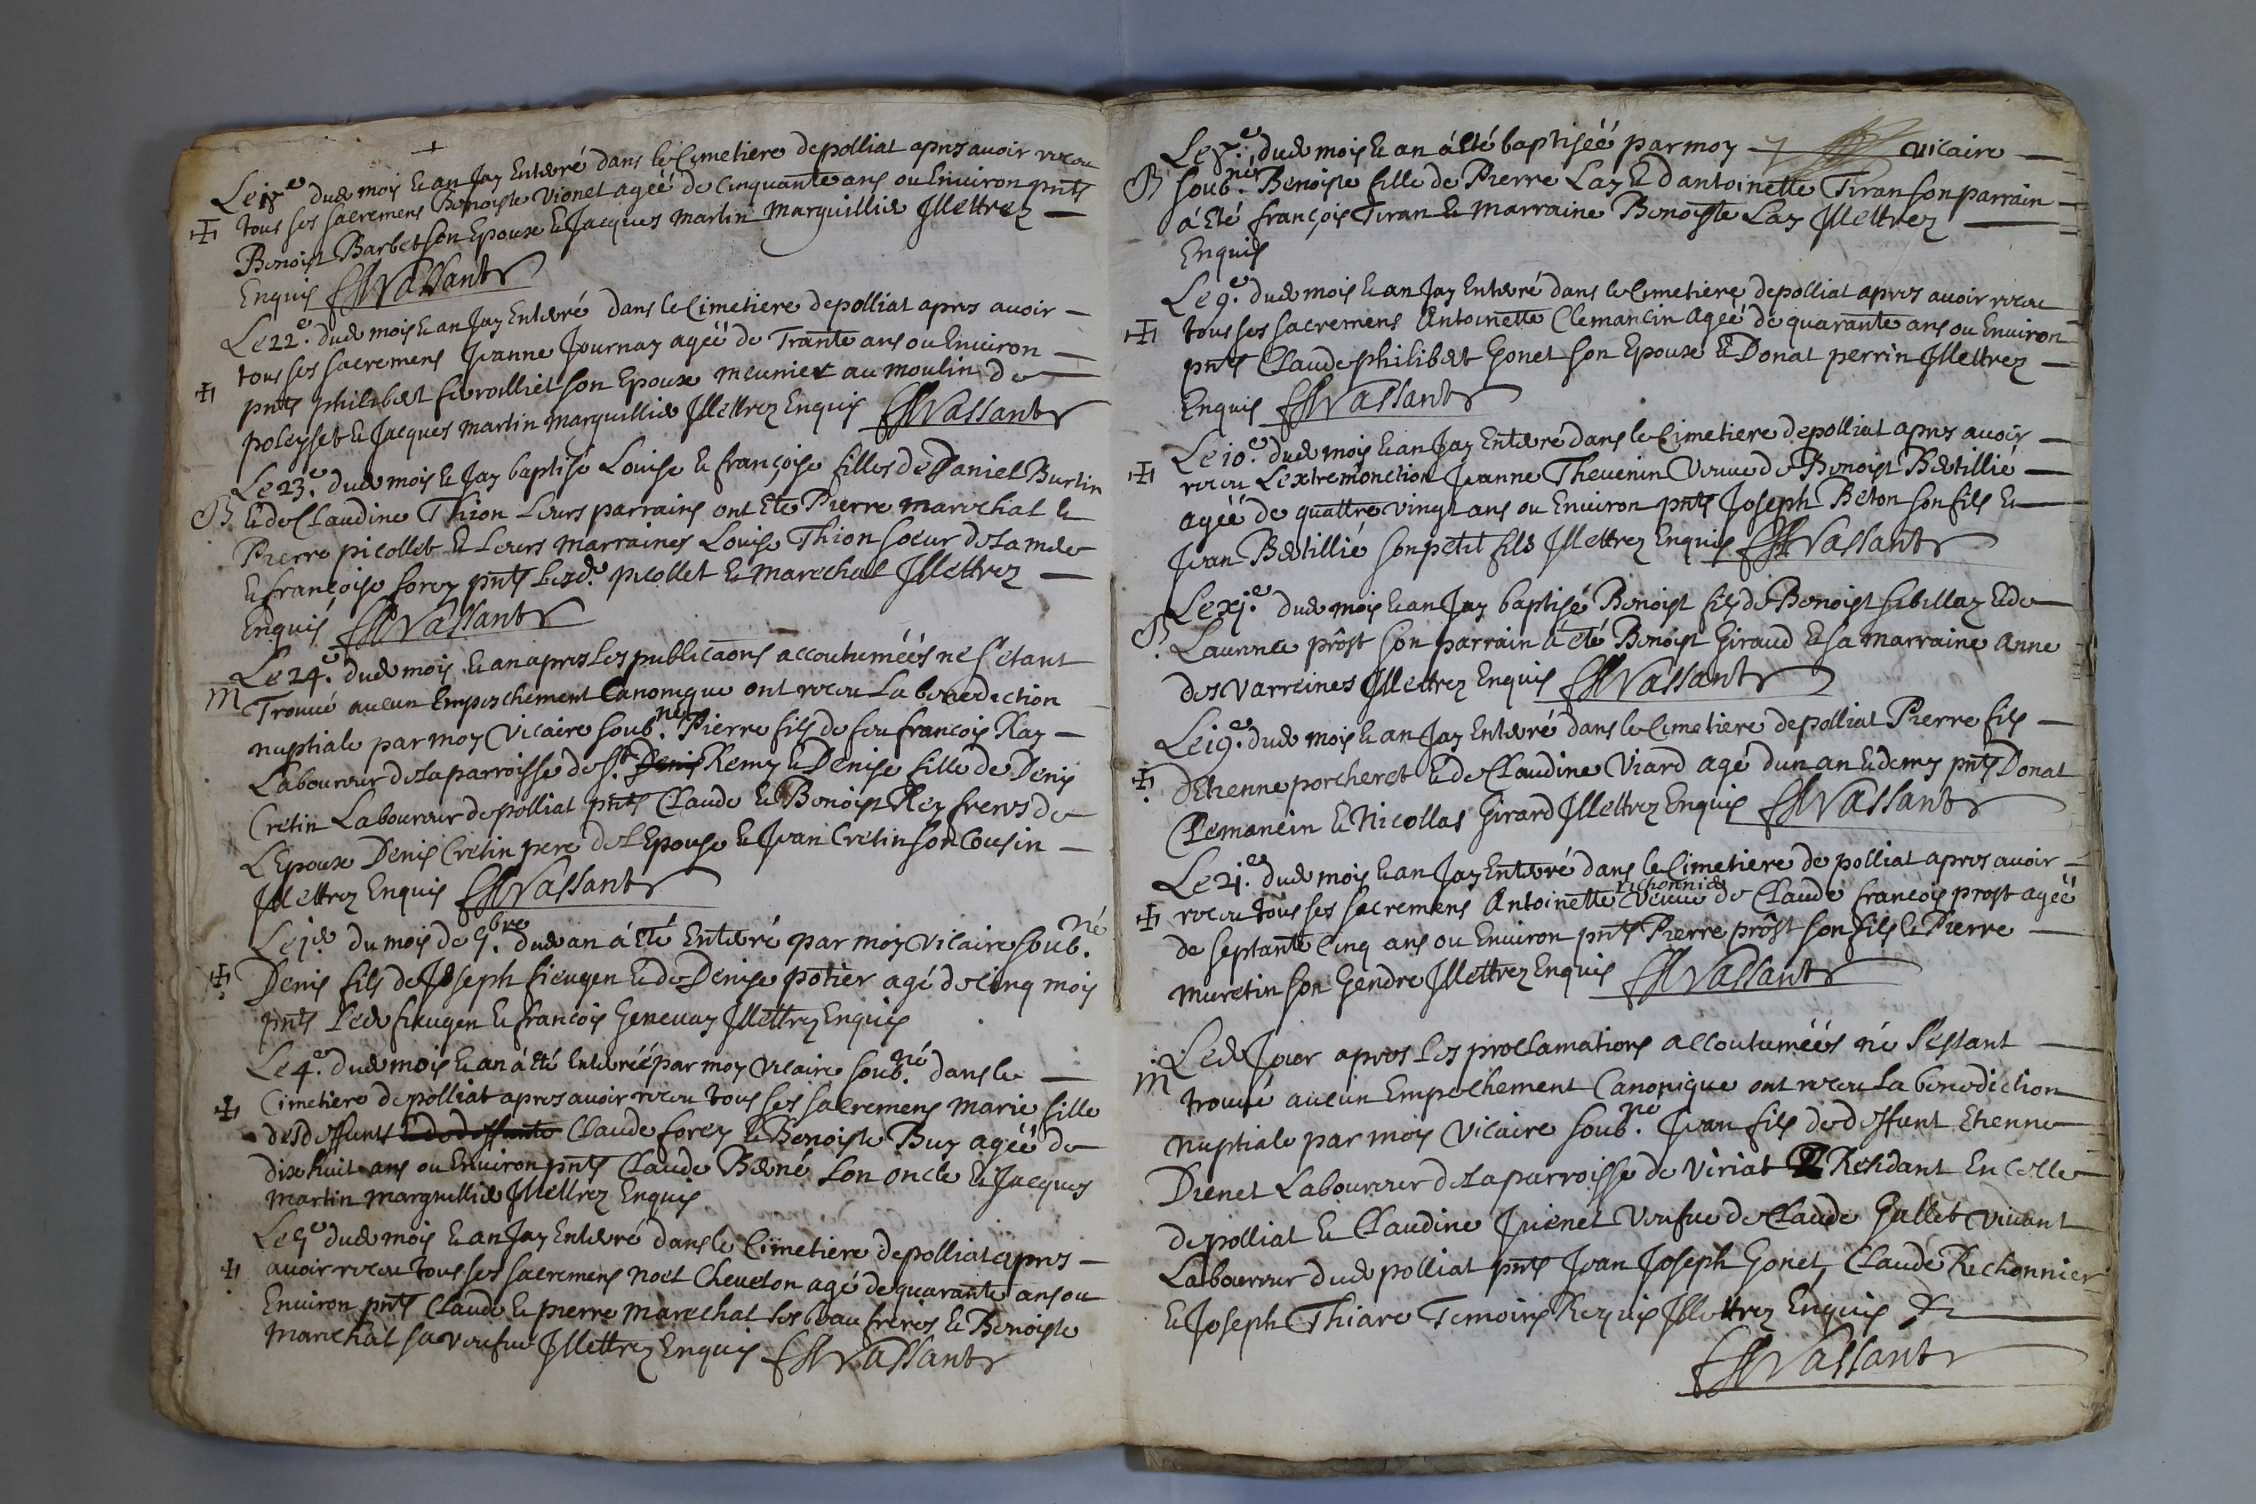 Le 18e dud mois & an Jay Enterré dans le Cimetiere depolliat apres avoir receu
tous ses sacremens Benoiste Vionet agéé de Cinquante ans ou Environ pnts
Benoist Barbet son Epoux & Jacques martin marguillier Jllettrez
Enquis Vassant
Le 22e. dud mois & an Jay Enterré dans le Cimetiere depolliat apres avoir
tous ses sacremens Jeanne Journay agéé de Trante ans ou Environ
pnts philibert fievolliet son Epoux meunier au moulin de
poleyset & Jacques martin marguillier Jllettrez Enquis Vassant
Le 23e. dud mois & Jay baptisé Louise & françoise filles de Daniel Burtin
B & de Claudine Thion Leurs parrains ont Eté Pierre marechal &
Pierre picollet & Leurs marraines Louise Thion soeur de la mere
& françoise forey pnts lesd. picollet & marechal Jllettrez
Enquis Vassant
Le 24e. dud mois & an apres les publicaons accoutuméés ne s'etant
M Trouvé aucun Empeschement Canonique ont receu La benediction
nuptiale par moy Vicaire soub.né Pierre fils de feu francois Ray
Laboureur de la parroisse de St. Denis Remy & Denise fille de Denis
Cretin Laboureur de polliat pnts Claude & Benoist Rey freres de
L'Epoux Denis Cretin pere de L'Epouse & Jean Cretin son Cousin
Jllettrez Enquis Vassant
Le 1er du mois de 9.bre dud an á Eté Enterré par moy Vicaire soub.né
Denis fils de Joseph fieugen & de Denise potier agé de Cinq mois
pnts Led fieugen & francois Genevay Jllettrez Enquis
Le 4e. dud mois & an á Eté Enterréé par moy Vicaire soub.né dans le
Cimetiere de polliat apres avoir receu tous ses sacremens marie fille
des deffunts & de deffunte Claude forey & Benoiste Buy agéé de
dix huit ans ou Environ pnts Claude Berné son oncle & Jacques
martin marguillier Jllettrez Enquis
Le 5e dud mois & an Jay Enterré dans le Cimetiere de polliat apres
avoir receu tous ses sacremens noel Cheveton agé de quarante ans ou
Environ pnts Claude & pierre marechal ses beau freres & Benoiste
marechal sa veufue Jllettrez Enquis Vassant
Le 8e. dud mois & an á Eté baptiséé par moy vicaire
B soub.né Benoiste fille de Pierre Lay & d'antoinette Tiran son parrain
á Eté françois Tiran & marraine Benoiste Lay Jllettrez
Enquis
Le 9e. dud mois & an Jay Enterré dans le Cimetiere depolliat apres avoir receu
tous ses sacremens Antoinette Clemancin Agéé de quarante ans ou Environ
pnts Claude philibert Gonet son Epoux & Donat perrin Jllettrez
Enquis Vassant
Le 10e. dud mois & an Jay Enterré dans le Cimetiere depolliat apres avoir
receu Lextremonction Jeanne Thevenin Veuve de Benoist Bertillié
agéé de quattre vingt ans ou Environ pnts Joseph Beton son fils &
Jean Bertillié son petit fils Jllettrez Enquis Vassant
Le xj.e dud mois & an Jay baptisé Benoist fils de Benoist sibellay & de
B Laurence prôst son parrain à été Benoist Giraud & sa marraine Anne
des Varreines Jllettrez Enquis Vassant
Le 19e. dud mois & an Jay Enterré dans le Cimetiere de polliat Pierre fils
d'Etienne porcheret & de Claudine Viard agé d'un an & demy pnts Donat
Clemancin & Nicollas Girard Jllettrez Enquis Vassant
Le 21e. dud mois & an Jay Enterré dans le Cimetiere de polliat apres avoir
receu tous ses sacremens Antoinette richonnier Veuve de Claude francois prost agéé
de septante Cinq ans ou Environ pnts Pierre prôst son fils & Pierre
muretin son Gendre Jllettrez Enquis Vassant
Led Jour apres les proclamations accoutuméés né s'estant
M trouvé aucun Empechement Canonique ont receu La benediction
nuptiale par moy Vicaire soub.né Jean fils de deffunt Etienne
Dienet Laboureur de la parroisse de Viriat Residant En celle
de polliat & Claudine Juenet Veufue de Claude Gallet vivant
Laboureur dud polliat pnts Jean Joseph Gonet, Claude Richonnier
& Joseph Thiare Temoins Requis Jllettrez Enquis &c
Vassant